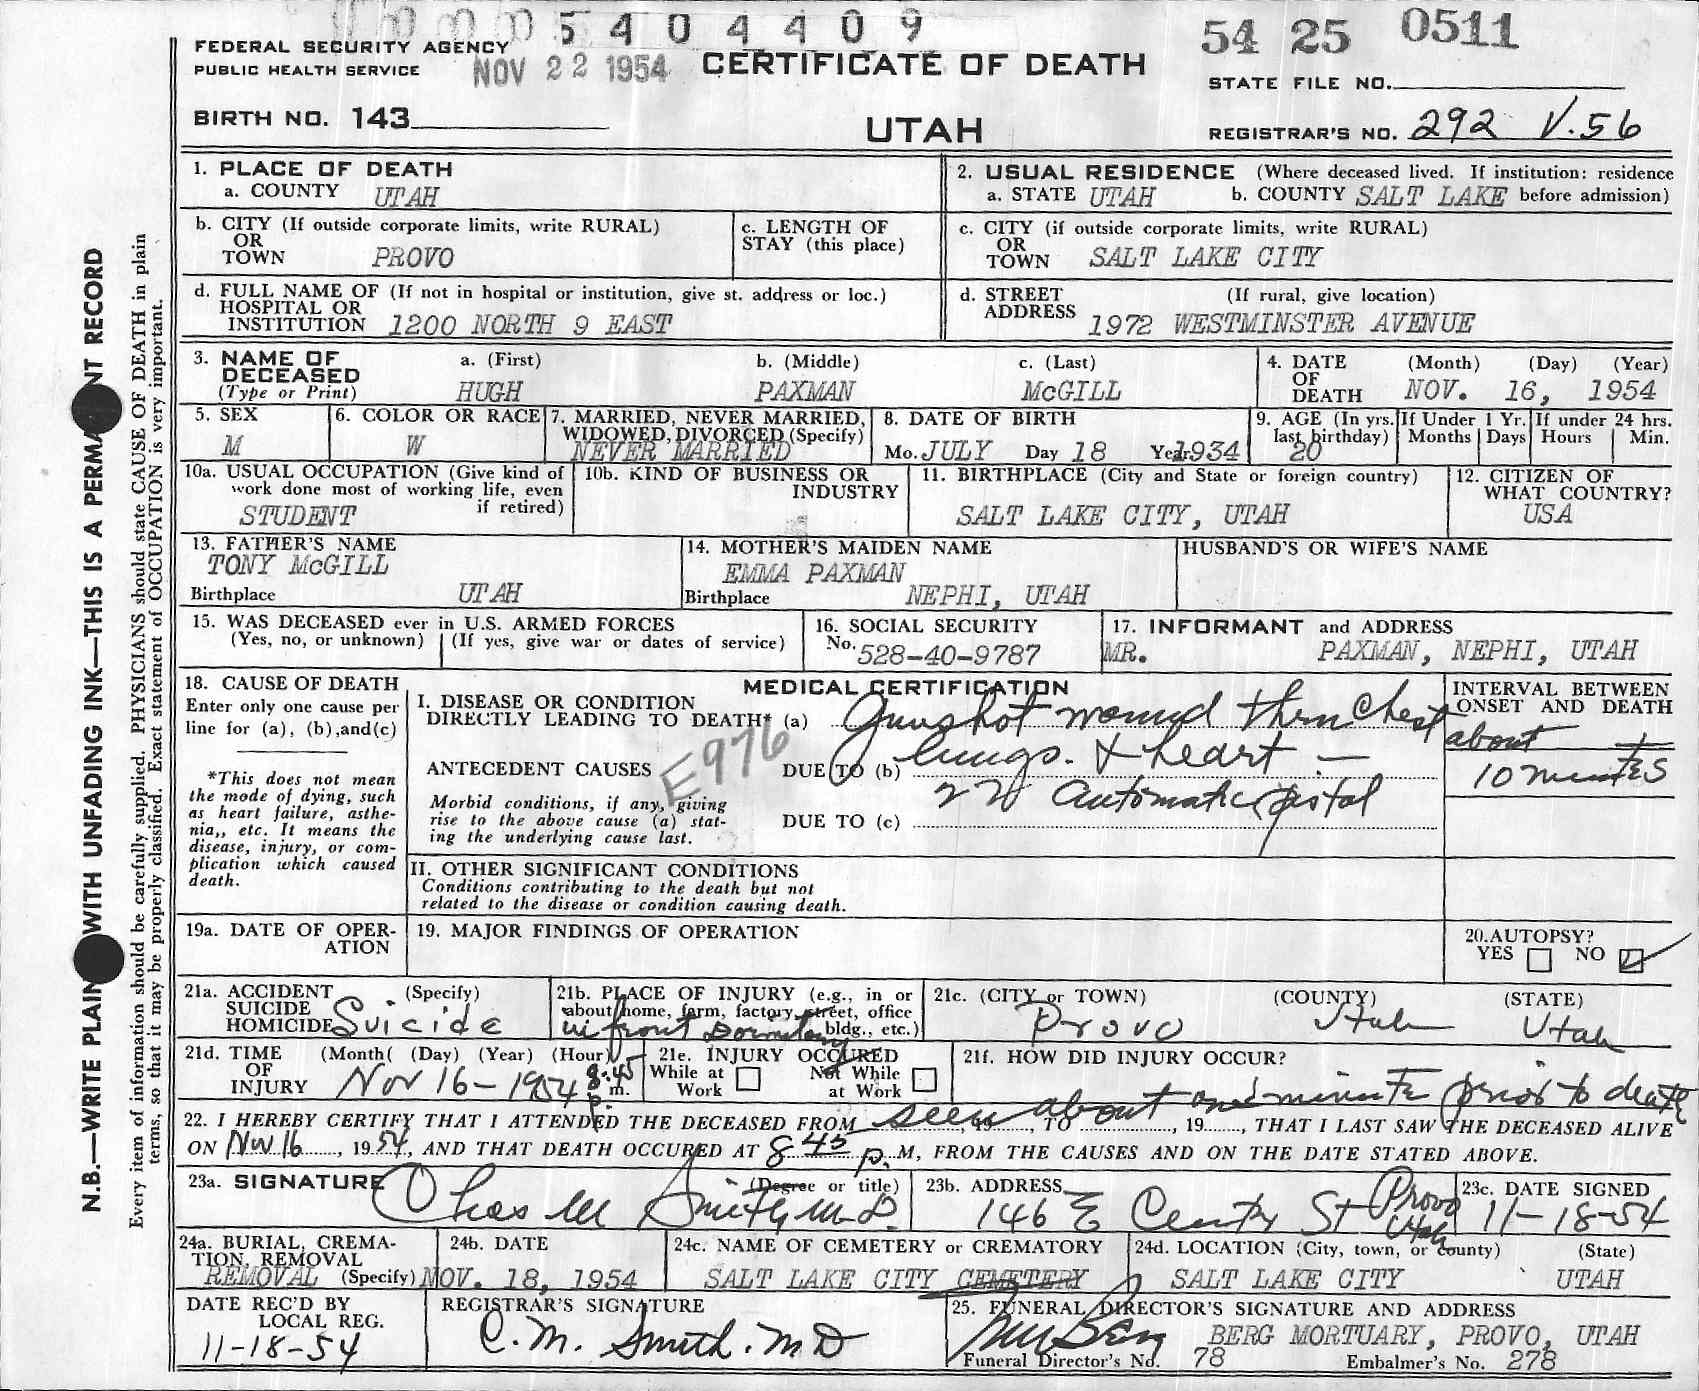 0000 5404409
54 25 0511
FEDERAL SECURITY AGENCY
PUBLIC HEALTH SERVICE
NOV 22 1954
CERTIFICATE OF DEATH
STATE FILE NO.
BIRTH NO. 143
UTAH
REGISTRAR'S NO. 292 V.56
N.B.—WRITE PLAIN WITH UNFADING INK—THIS IS A PERMA NT RECORD
Every item of information should be carefully supplied. PHYSICIANS should state CAUSE OF DEATH in plain
terms, so that it may be properly classified. Exact statement of OCCUPATION is very important.
1. PLACE OF DEATH
a. COUNTY UTAH
2. USUAL RESIDENCE (Where deceased lived. If institution: residence
a. STATE UTAH b. COUNTY SALT LAKE before admission)
b. CITY (If outside corporate limits, write RURAL)
OR
TOWN PROVO
c. LENGTH OF
STAY (this place)
c. CITY (if outside corporate limits, write RURAL)
OR
TOWN SALT LAKE CITY
d. FULL NAME OF (If not in hospital or institution, give st. address or loc.)
HOSPITAL OR
INSTITUTION 1200 NORTH 9 EAST
d. STREET (If rural, give location)
ADDRESS 1972 WESTMINSTER AVENUE
3. NAME OF a. (First) b. (Middle) c. (Last)
DECEASED
(Type or Print) HUGH PAXMAN McGILL
4. DATE (Month) (Day) (Year)
OF
DEATH NOV. 16, 1954
5. SEX
M
6. COLOR OR RACE
W
7. MARRIED, NEVER MARRIED,
WIDOWED, DIVORCED (Specify)
NEVER MARRIED
8. DATE OF BIRTH
Mo. JULY Day 18 Year 1934
9. AGE (In yrs.
last birthday)
20
If Under 1 Yr.
Months Days
If under 24 hrs.
Hours Min.
10a. USUAL OCCUPATION (Give kind of
work done most of working life, even
if retired)
STUDENT
10b. KIND OF BUSINESS OR
INDUSTRY
11. BIRTHPLACE (City and State or foreign country)
SALT LAKE CITY, UTAH
12. CITIZEN OF
WHAT COUNTRY?
USA
13. FATHER'S NAME
TONY McGILL
Birthplace UTAH
14. MOTHER'S MAIDEN NAME
EMMA PAXMAN
Birthplace NEPHI, UTAH
HUSBAND'S OR WIFE'S NAME
15. WAS DECEASED ever in U.S. ARMED FORCES
(Yes, no, or unknown) (If yes, give war or dates of service)
16. SOCIAL SECURITY
No. 528-40-9787
17. INFORMANT and ADDRESS
MR. PAXMAN, NEPHI, UTAH
18. CAUSE OF DEATH
Enter only one cause per
line for (a), (b),and(c)
*This does not mean
the mode of dying, such
as heart failure, asthe-
nia,, etc. It means the
disease, injury, or com-
plication which caused
death.
MEDICAL CERTIFICATION
I. DISEASE OR CONDITION
DIRECTLY LEADING TO DEATH* (a) Gunshot wound thru Chest
E976
ANTECEDENT CAUSES DUE TO (b) lungs. & heart —
22 automatic pistol
Morbid conditions, if any, giving
rise to the above cause (a) stat-
ing the underlying cause last.
DUE TO (c)
INTERVAL BETWEEN
ONSET AND DEATH
about
10 minutes
II. OTHER SIGNIFICANT CONDITIONS
Conditions contributing to the death but not
related to the disease or condition causing death.
19a. DATE OF OPER-
ATION
19. MAJOR FINDINGS OF OPERATION
20.AUTOPSY?
YES NO
21a. ACCIDENT (Specify)
SUICIDE
HOMICIDE Suicide
21b. PLACE OF INJURY (e.g., in or
about home, farm, factory, street, office
bldg., etc.)
in front Dormitory
21c. (CITY or TOWN) (COUNTY) (STATE)
Provo Utah Utah
21d. TIME (Month( (Day) (Year) (Hour)
OF
INJURY Nov 16-1954 8:45 p. m.
21e. INJURY OCCURED
While at Not While
Work at Work
21f. HOW DID INJURY OCCUR?
22. I HEREBY CERTIFY THAT I ATTENDED THE DECEASED FROM seen about one minute prior to death, 19......, TO ........, 19......, THAT I LAST SAW THE DECEASED ALIVE
ON Nov 16, 1954, AND THAT DEATH OCCURED AT 8 45 p. M, FROM THE CAUSES AND ON THE DATE STATED ABOVE.
23a. SIGNATURE (Degree or title)
Chas M Smith M.D.
23b. ADDRESS
146 E Center St Provo Utah
23c. DATE SIGNED
11-18-54
24a. BURIAL, CREMA-
TION, REMOVAL
REMOVAL (Specify)
24b. DATE
NOV. 18, 1954
24c. NAME OF CEMETERY or CREMATORY
SALT LAKE CITY CEMETERY
24d. LOCATION (City, town, or county) (State)
SALT LAKE CITY UTAH
DATE REC'D BY
LOCAL REG.
11-18-54
REGISTRAR'S SIGNATURE
C. M. Smith. MD
25. FUNERAL DIRECTOR'S SIGNATURE AND ADDRESS
BERG MORTUARY, PROVO, UTAH
Funeral Director's No. 78 Embalmer's No. 278